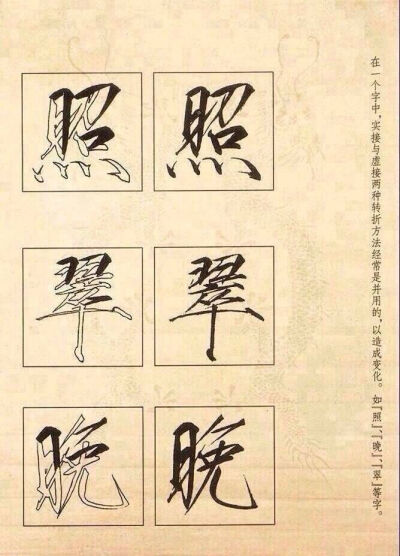 在一个字中，实接与虚接两种转折方法经常是并用的，以造成变化。如『照』、『晚』、『翠』等字。
照 照
翠 翠
晚 晚